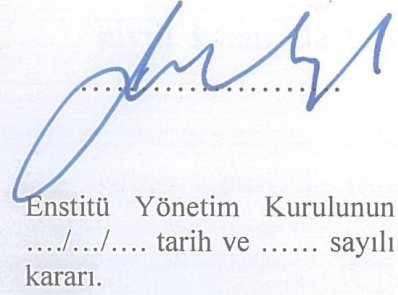 ..........................
Enstitü Yönetim Kurulunun
…./…/…. tarih ve …… sayılı
kararı.